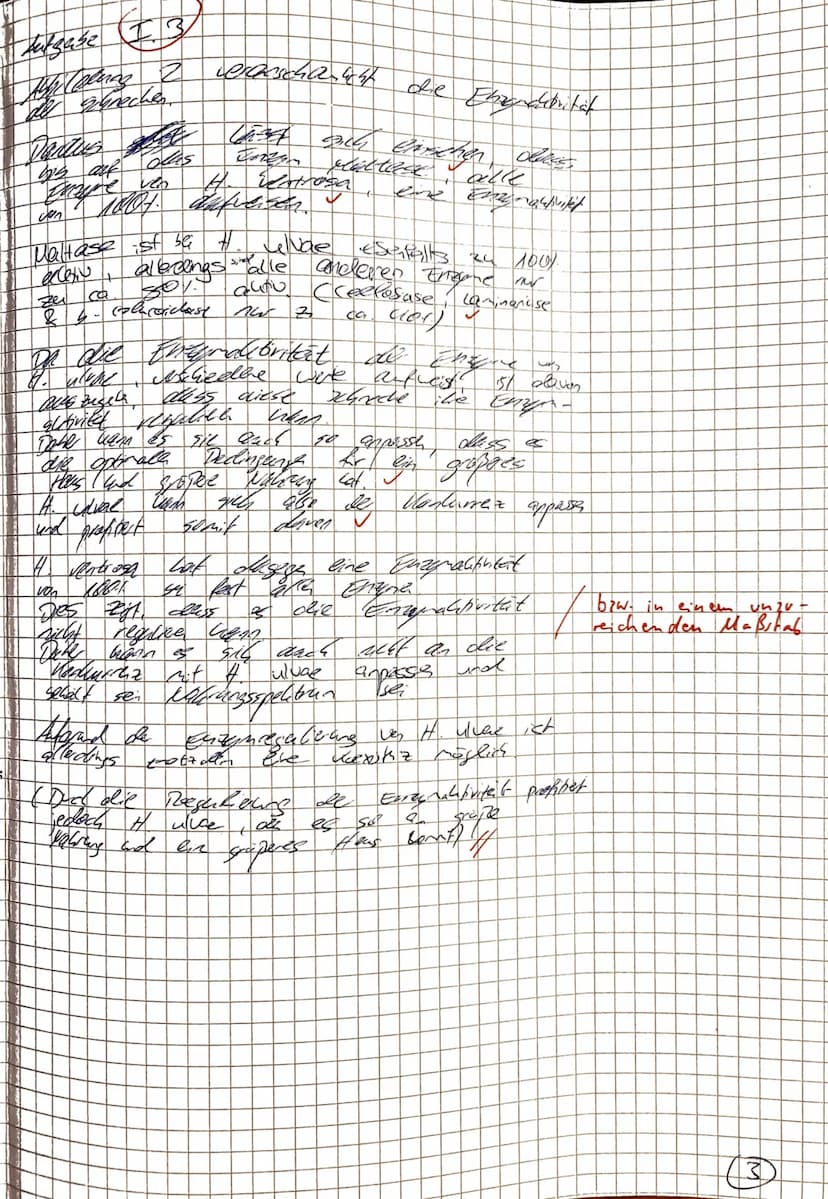 Aufgabe I.3
Abbildung 2 veranschaulicht die Enzymaktivität
der Schnecken.
Daraus lässt sich einsehen, dass,
bis auf das Enzym Maltase, alle
Enzyme von H. ventrosa, eine Enzymaktivität
von 100% aufweisen.
Maltase ist bei H. ulvae ebenfalls zu 100%
aktiv, allerdings sind alle anderen Enzyme nur
zu ca. 50% aktiv. (Cellobiase, Laminarinase
& nur zu ca.
Da die Enzymaktivität der Enzyme von
H. ulvae, verschiedene Werte aufweist, ist davon
auszugehen, dass diese Schnecke ihre Enzym-
aktivität regulieren kann.
Daher kann es sie auch so anpassen, dass es
die optimalen Bedingungen für ein größeres
Haus und größere Nahrung hat.
H. ulvae kann sich also der Konkurrenz anpassen
und profitiert somit davon
H. ventrosa hat dagegen eine Enzymaktivität
von 100% zu fast allen Enzymen
Dies zeigt, dass es die Enzymaktivität
nicht regulieren kann
bzw. in einem unzu-
reichenden Maßstab
Daher kann es sich auch nicht an die
Konkurrenz mit H. ulvae anpassen und
sein Nahrungsspektrum bei
Aufgrund der Enzymregulierung von H. ulvae ist
allerdings trotzdem eine Koexistenz möglich
(Durch die Regulierung der Enzymaktivität profitiert
jedoch H ulvae, da es so an große
Nahrung und ein größeres Haus kommt)
3